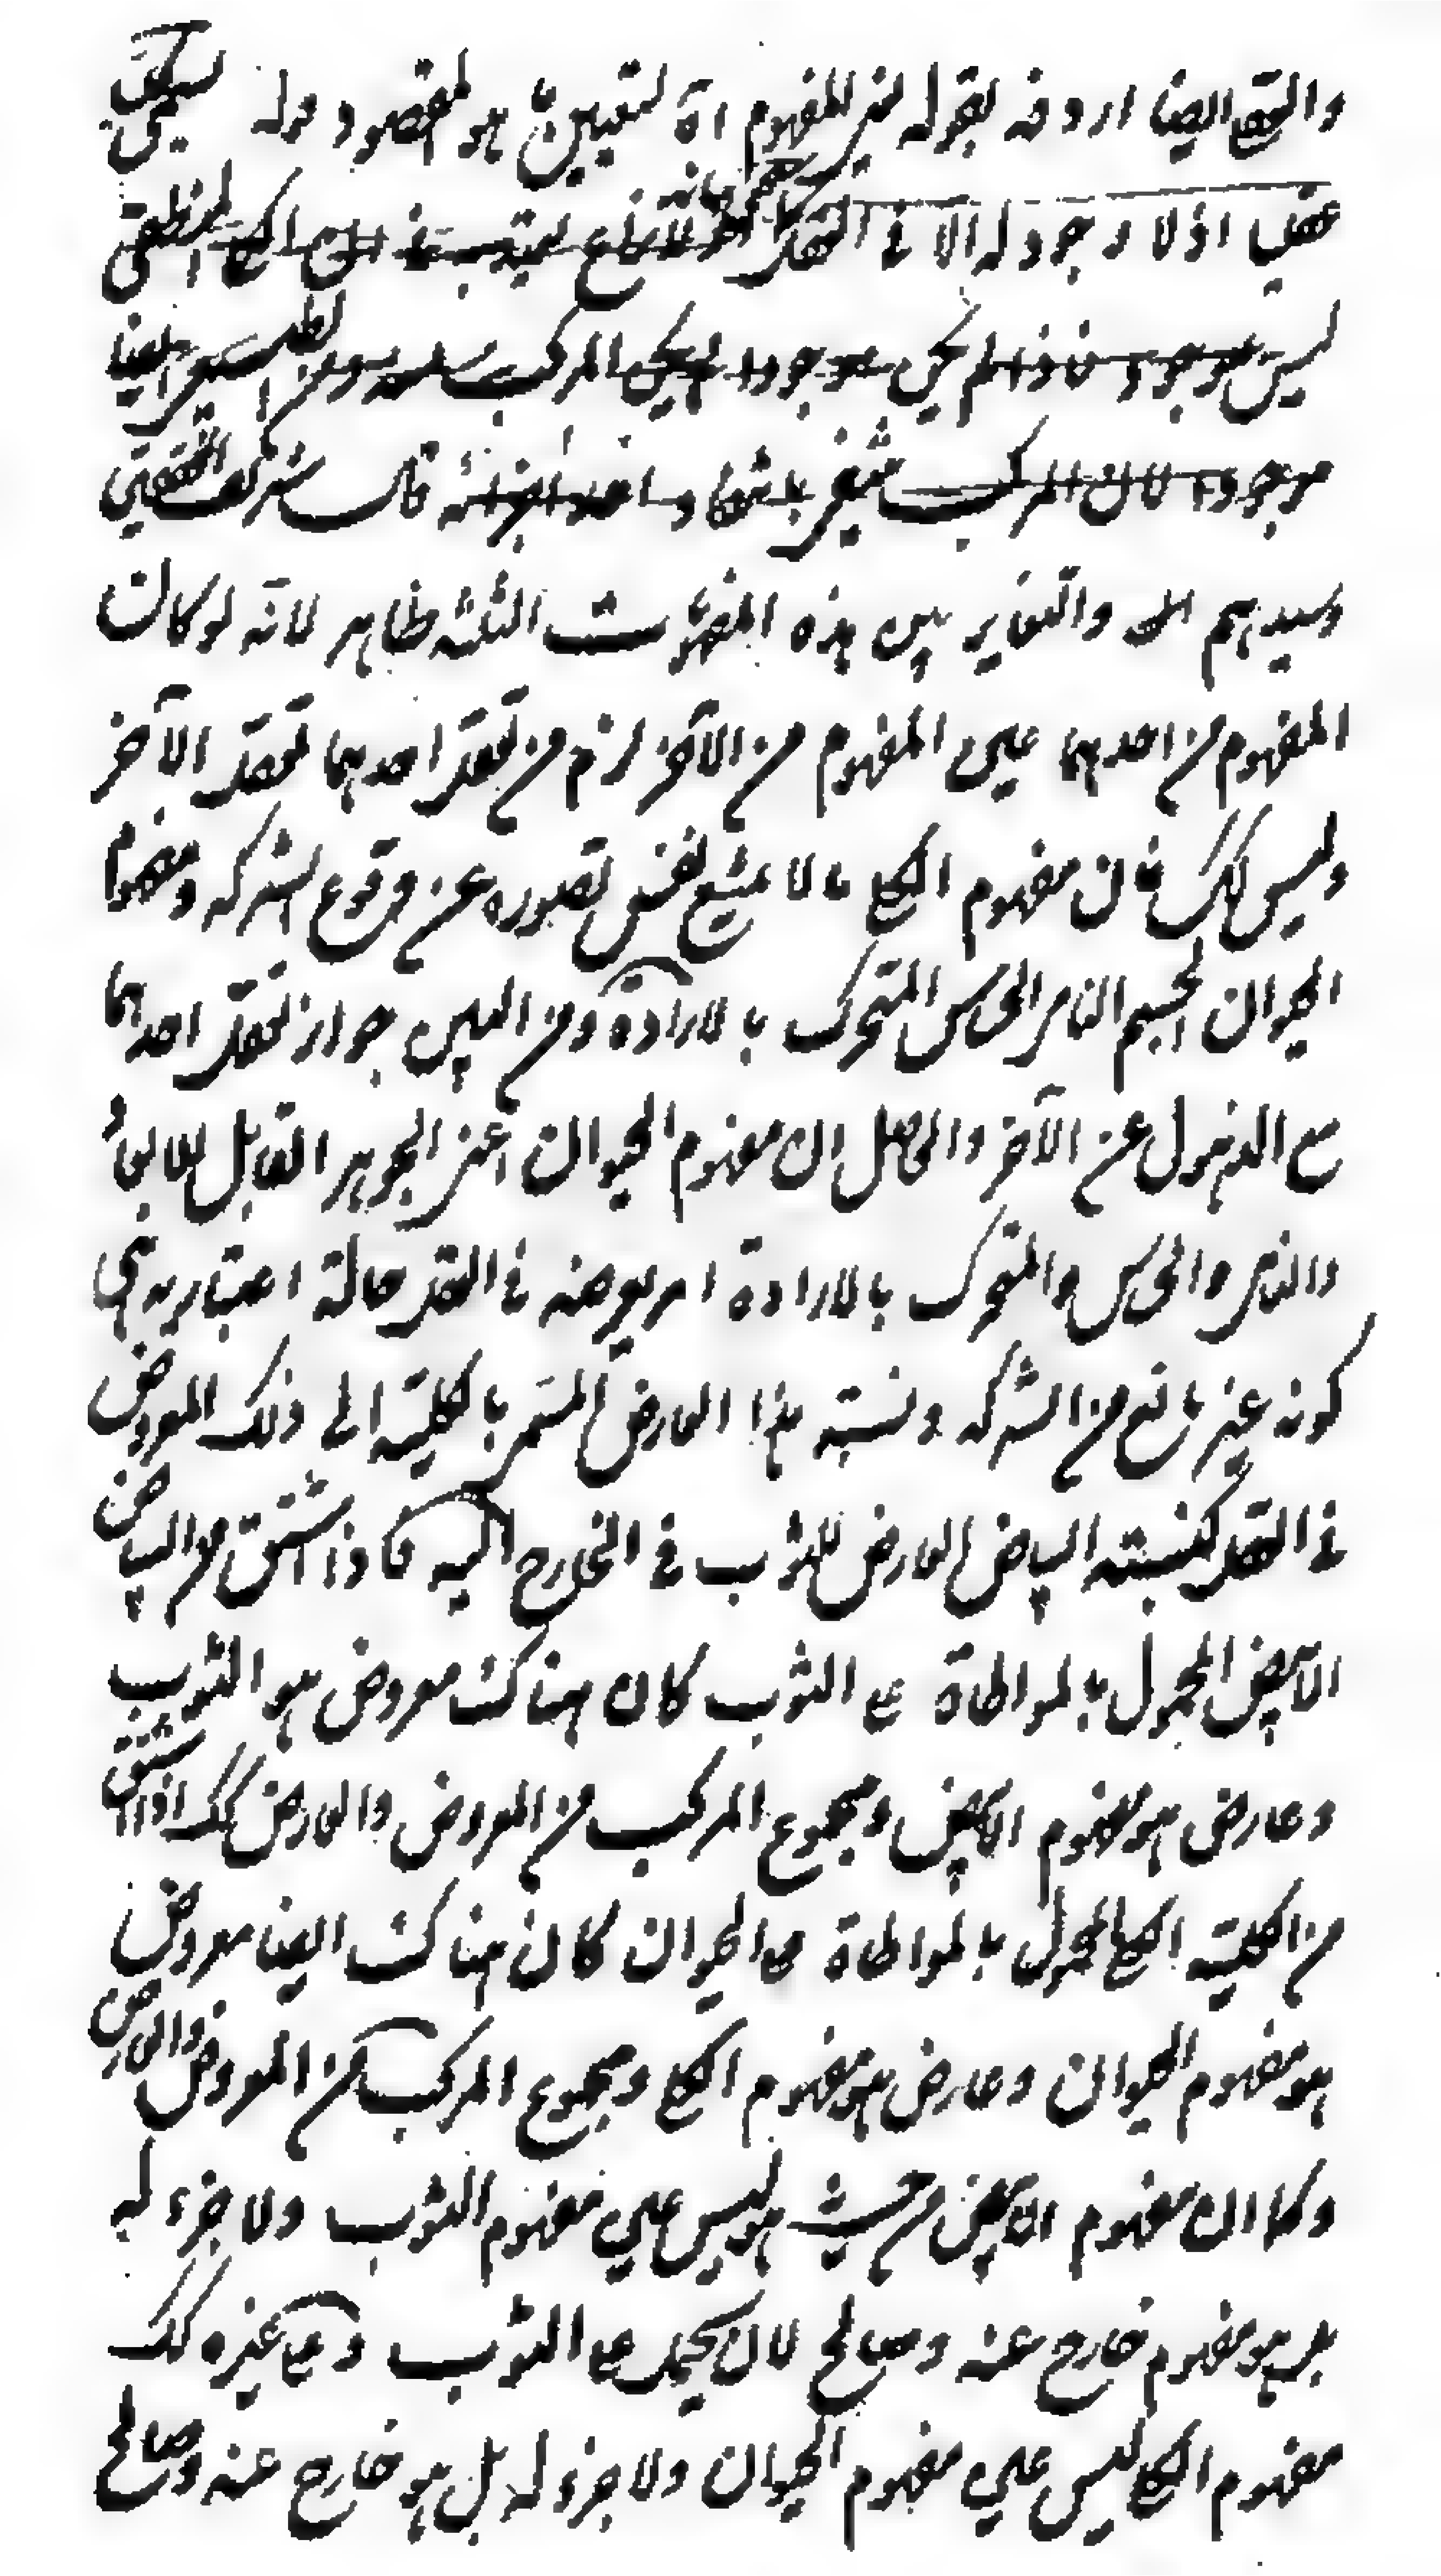 والتحقق ايضا اردفه بقوله للمفهوم لتعيين ما هو المقصود قوله
عقليا اذ لا وجود له الا في العقل
ليس موجودا فاذا لم يكن موجودا لم يكن المركب
موجودا لان المركب ينتفي بانتفاء واحد اجزائه قال
وسيدهم الخ والتغاير بين هذه المفهومات الثلثة ظاهر لانه لو كان
المفهوم من احدهما عين المفهوم من الآخر لزم من تعقل احدهما تعقل الآخر
وليس كك فان مفهوم الكلي ما لا يمنع نفس تصوره عن وقوع الشركة ومفهوم
الحيوان الجسم النامي الحساس المتحرك بالارادة ومن البين جواز تعقل احدهما
مع الذهول عن الآخر والحاصل ان مفهوم الحيوان اعني الجوهر القابل للابعاد
والنامي والحساس والمتحرك بالارادة امر يعرضه في العقل حالة اعتبارية هي
كونه غير مانع من الشركة ونسبة هذا العارض المسمى بالكلية الى ذلك المعروض
في العقل كنسبة البياض العارض للثوب في الخارج اليه فاذا اشتق من البياض
الابيض المحمول بالمواطاة على الثوب كان هناك معروض هو الثوب
وعارض هو مفهوم الابيض ومجموع المركب من المعروض والعارض كك اذا اشتق
من الكلية الكلي المحمول بالمواطاة على الحيوان كان هناك ايضا معروض
هو مفهوم الحيوان وعارض هو مفهوم الكلي ومجموع المركب من المعروض والعارض
وكما ان مفهوم الابيض من حيث هو ليس عين مفهوم الثوب ولا جزء له
بل هو مفهوم خارج عنه وصالح لان يحمل على الثوب وعلى غيره كك
مفهوم الكلي ليس عين مفهوم الحيوان ولا جزء له بل هو خارج عنه وصالح